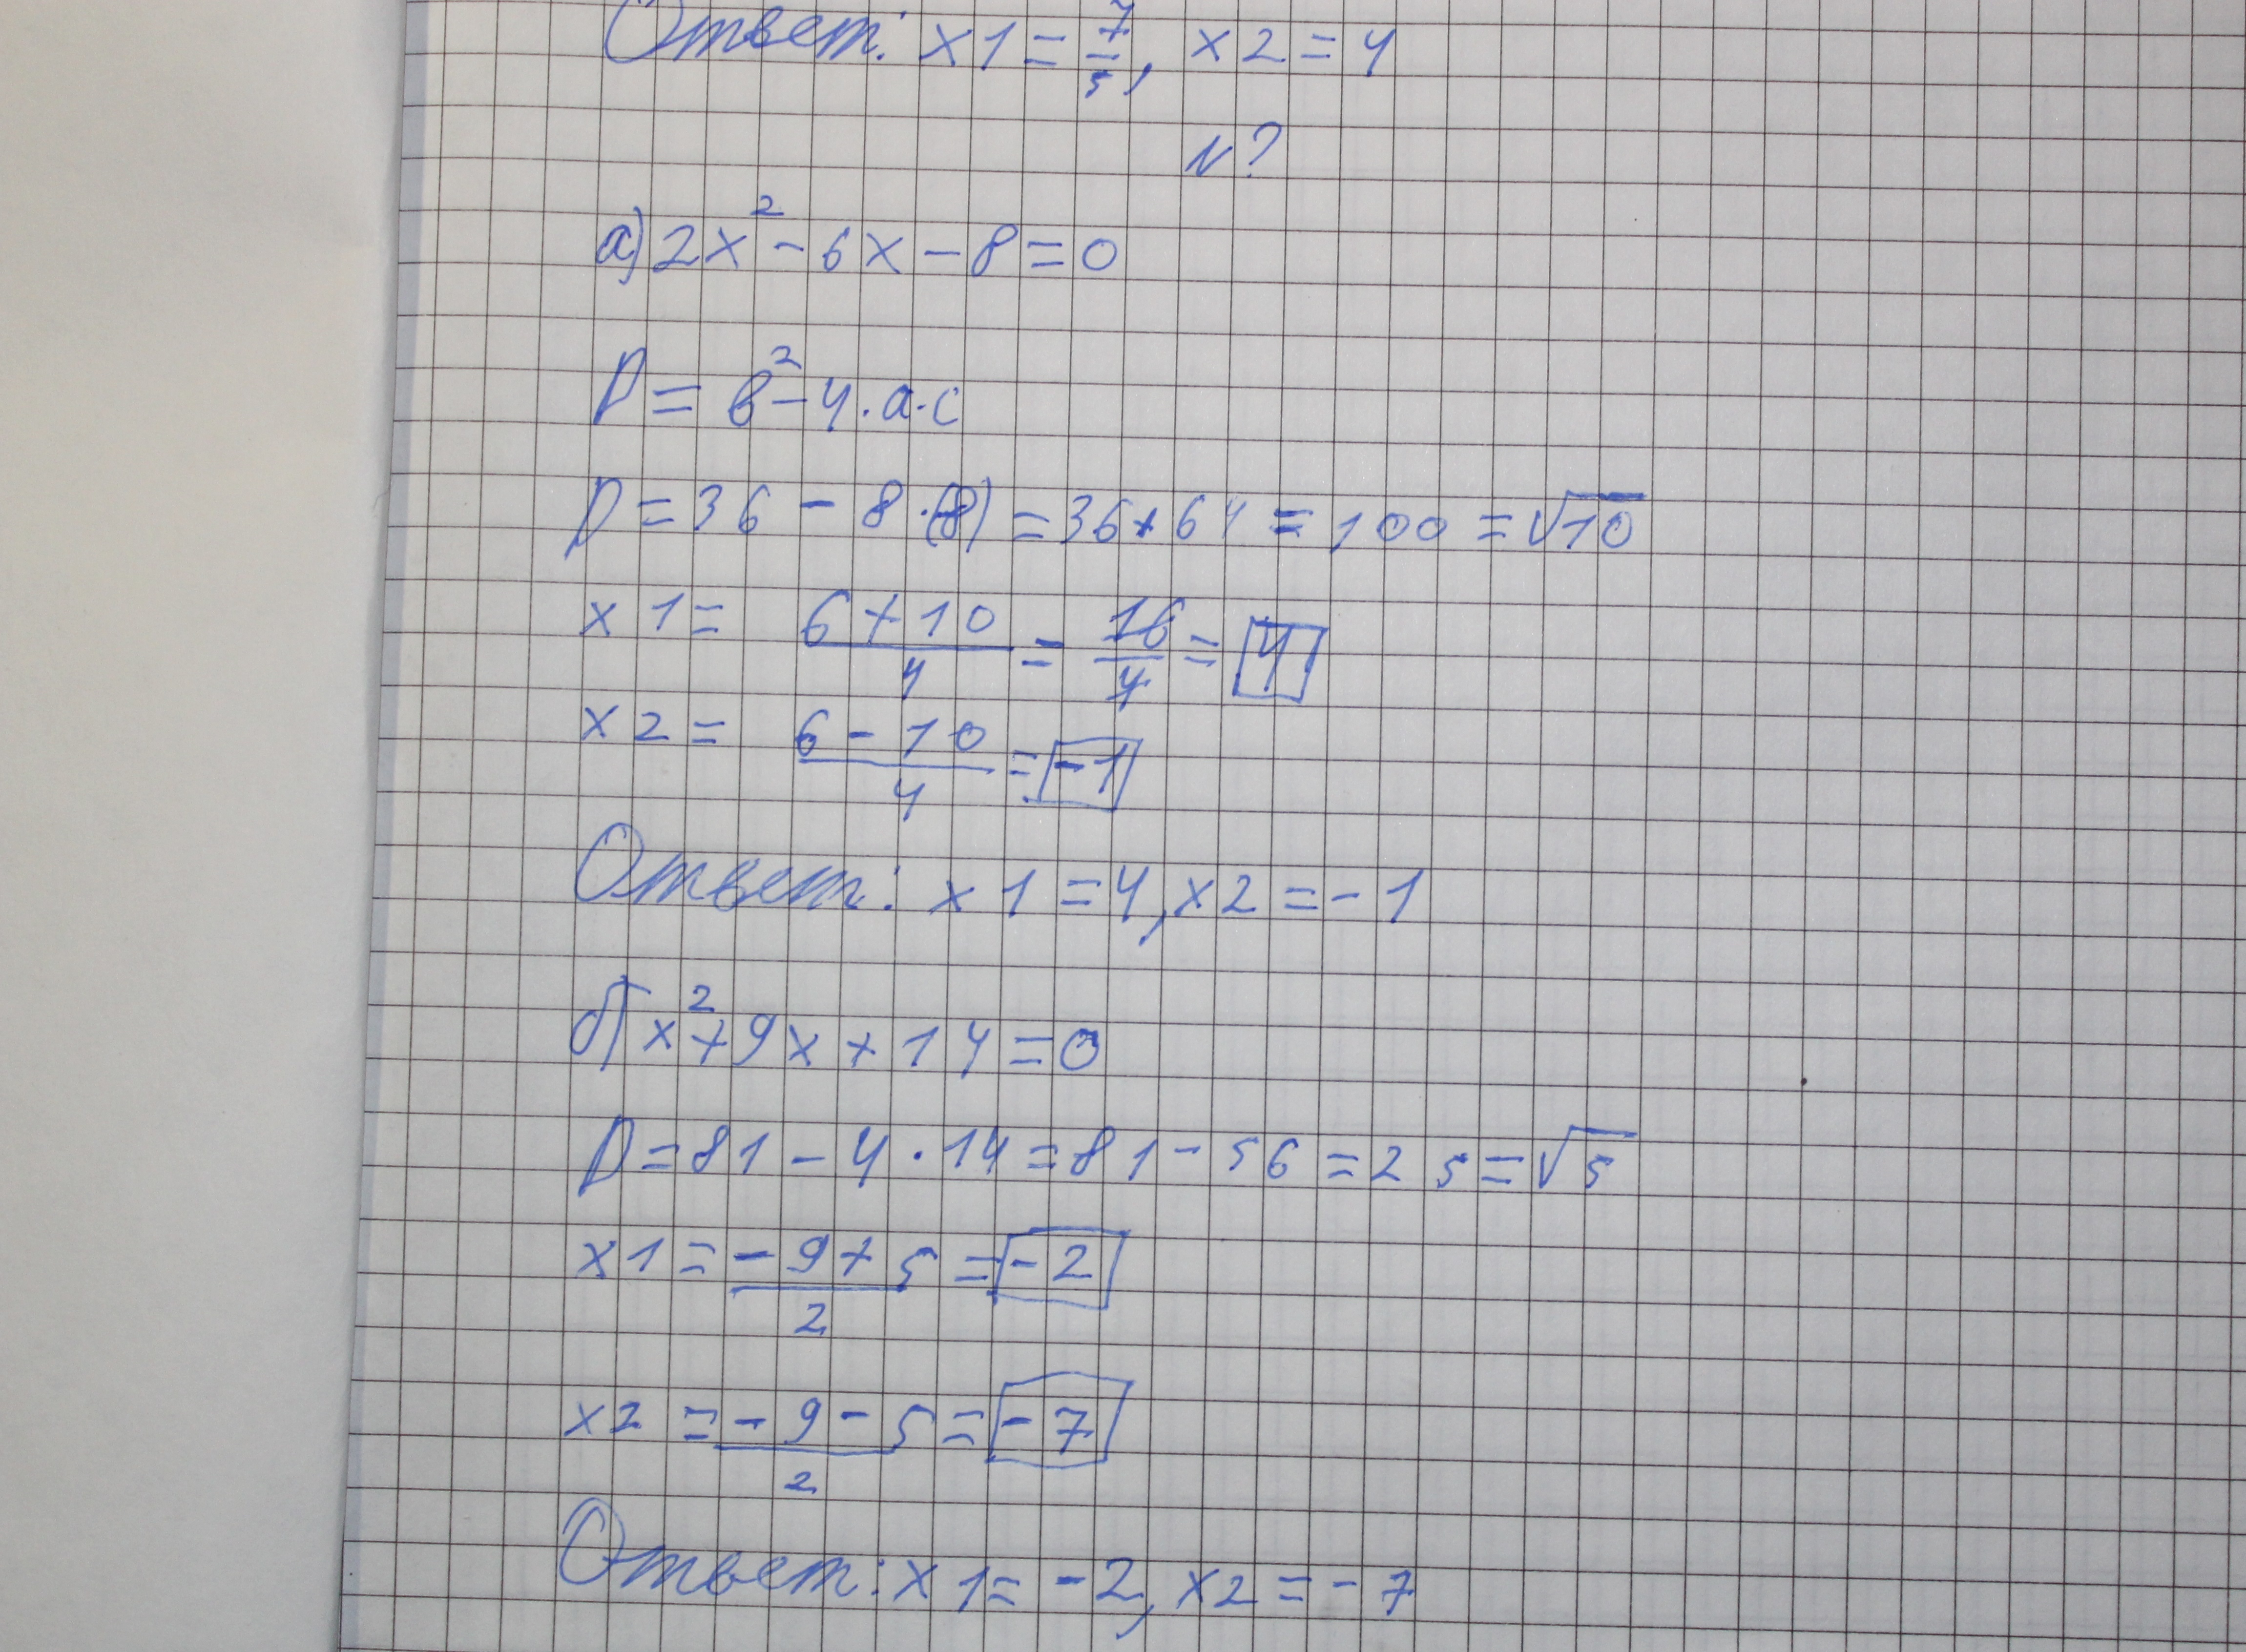 Ответ: x1 = 7/5, x2 = 4
N?
а) 2x² - 6x - 8 = 0
D = b² - 4·a·c
D = 36 - 8·(-8) = 36 + 64 = 100 = √10
x1 = (6 + 10)/4 = 16/4 = 4
x2 = (6 - 10)/4 = -1
Ответ: x1 = 4, x2 = -1
б) x² + 9x + 14 = 0
D = 81 - 4·14 = 81 - 56 = 25 = √5
x1 = (-9 + 5)/2 = -2
x2 = (-9 - 5)/2 = -7
Ответ: x1 = -2, x2 = -7